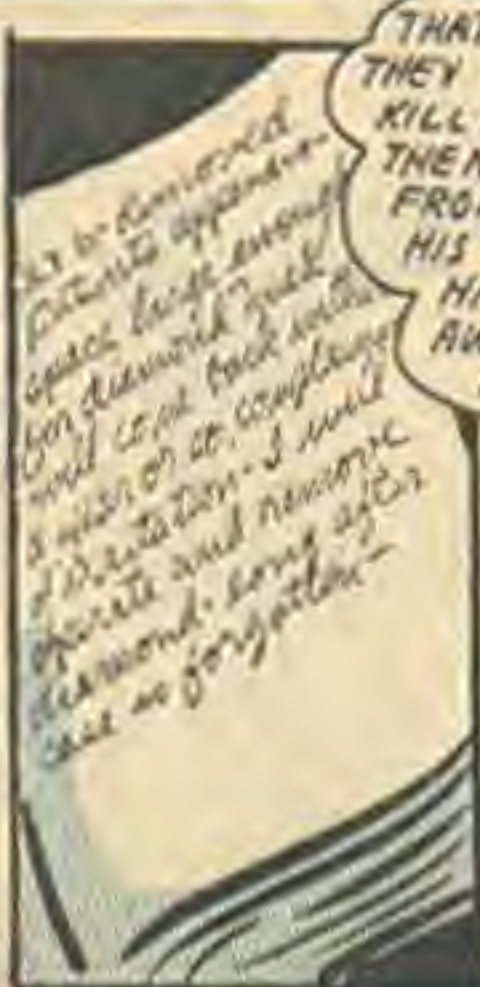 removed
patient's appendix-
space large enough
for diamond
will come back
a year or so. complaining
of irritation - I will
operate and remove
diamond. long after
case is forgotten -
THAT
THEY
KILL
THEN
FRO
HIS
HI
AW